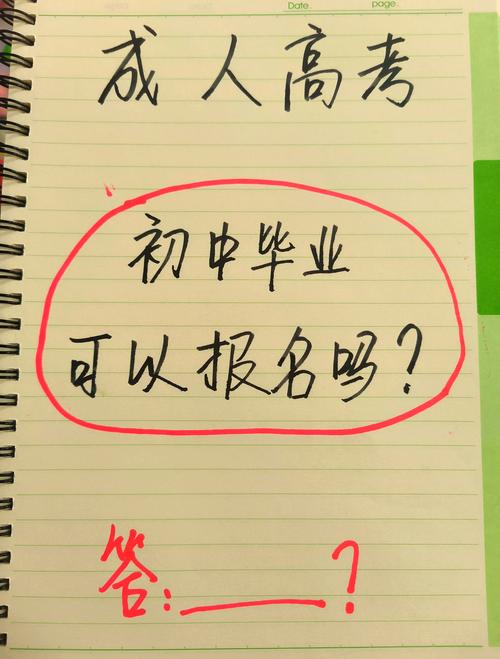 Date.
page.
成人高考
初中毕业
可以报名吗?
答:____?